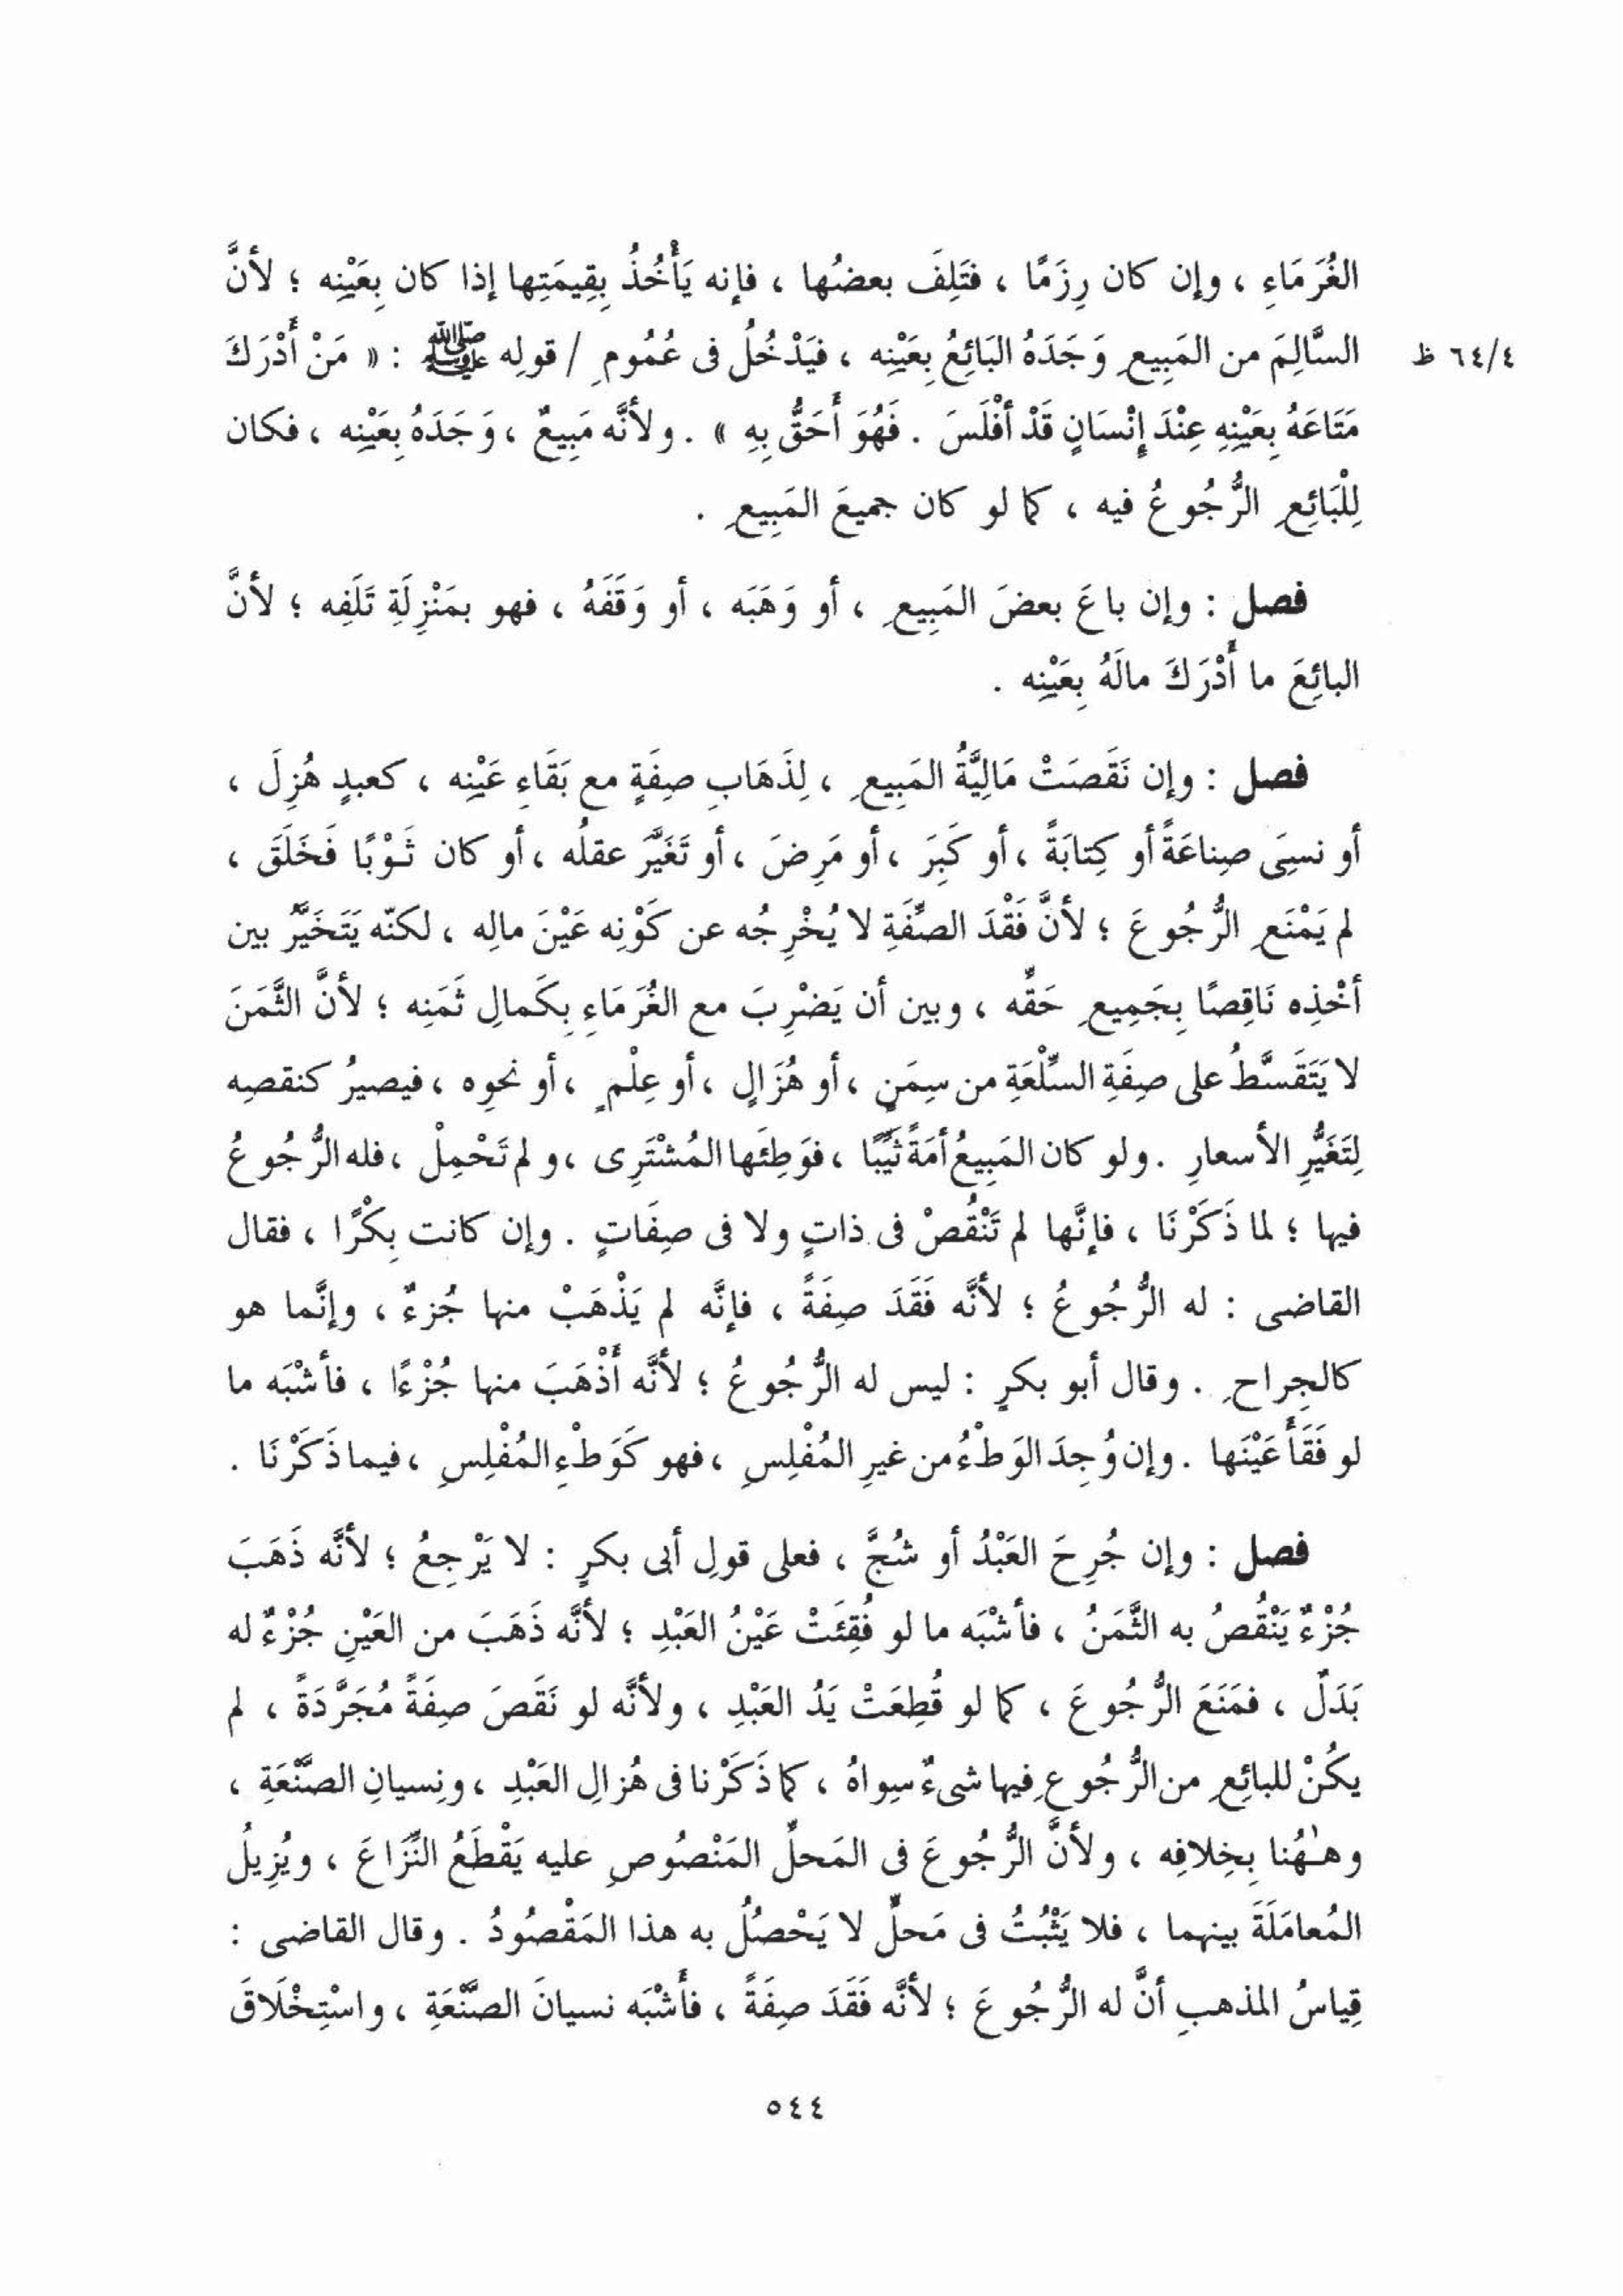 الغُرَمَاءِ ، وإن كان رِزَمًا ، فتَلِفَ بعضُها ، فإنه يَأْخُذُ بقِيمَتِها إذا كان بِعَيْنِه ؛ لأنَّ
السَّالِمَ من المَبِيعِ وَجَدَهُ البَائِعُ بِعَيْنِه ، فيَدْخُلُ فى عُمُومِ / قولِه ﷺ : « مَنْ أَدْرَكَ
٦٤/٤ ظ
مَتَاعَهُ بِعَيْنِهِ عِنْدَ إِنْسَانٍ قَدْ أَفْلَسَ . فَهُوَ أَحَقُّ بِهِ » . ولأنَّه مَبِيعٌ ، وَجَدَهُ بِعَيْنِه ، فكان
لِلْبَائِعِ الرُّجُوعُ فيه ، كما لو كان جميعَ المَبِيعِ .
فصل : وإن باعَ بعضَ المَبِيعِ ، أو وَهَبَه ، أو وَقَفَهُ ، فهو بمَنْزِلَةِ تَلَفِه ؛ لأنَّ
البائِعَ ما أَدْرَكَ مالَهُ بِعَيْنِه .
فصل : وإن نَقَصَتْ مَالِيَّةُ المَبِيعِ ، لِذَهَابِ صِفَةٍ مع بَقَاءِ عَيْنِه ، كعبدٍ هُزِلَ ،
أو نسِىَ صِناعَةً أو كِتابَةً ، أو كَبِرَ ، أو مَرِضَ ، أو تَغَيَّرَ عقلُه ، أو كان ثَوْبًا فَخَلَقَ ،
لم يَمْنَعِ الرُّجُوعَ ؛ لأنَّ فَقْدَ الصِّفَةِ لا يُخْرِجُه عن كَوْنِه عَيْنَ مالِه ، لكنّه يَتَخَيَّرُ بين
أخْذِه نَاقِصًا بِجَمِيعِ حَقِّه ، وبين أن يَضْرِبَ مع الغُرَمَاءِ بِكَمالِ ثَمَنِه ؛ لأنَّ الثَّمَنَ
لا يَتَقَسَّطُ على صِفَةِ السِّلْعَةِ من سِمَنٍ ، أو هُزَالٍ ، أو عِلْمٍ ، أو نحوِه ، فيصيرُ كنقصِه
لِتَغَيُّرِ الأسعارِ . ولو كان المَبِيعُ أمَةً ثَيِّبًا ، فوَطِئَها المُشْتَرِى ، ولم تَحْمِلْ ، فله الرُّجُوعُ
فيها ؛ لما ذَكَرْنَا ، فإنَّها لم تَنْقُصْ فى ذاتٍ ولا فى صِفَاتٍ . وإن كانت بِكْرًا ، فقال
القاضى : له الرُّجُوعُ ؛ لأنَّه فَقَدَ صِفَةً ، فإنَّه لم يَذْهَبْ منها جُزءٌ ، وإنَّما هو
كالجِراحِ . وقال أبو بكرٍ : ليس له الرُّجُوعُ ؛ لأنَّه أَذْهَبَ منها جُزْءًا ، فأشْبَه ما
لو فَقَأَ عَيْنَها . وإن وُجِدَ الوَطْءُ من غيرِ المُفْلِسِ ، فهو كَوَطْءِ المُفْلِسِ ، فيما ذَكَرْنَا .
فصل : وإن جُرِحَ العَبْدُ أو شُجَّ ، فعلى قولِ أبى بكرٍ : لا يَرْجِعُ ؛ لأنَّه ذَهَبَ
جُزْءٌ يَنْقُصُ به الثَّمَنُ ، فأشْبَه ما لو فُقِئَتْ عَيْنُ العَبْدِ ؛ لأنَّه ذَهَبَ من العَيْنِ جُزْءٌ له
بَدَلٌ ، فمَنَعَ الرُّجُوعَ ، كما لو قُطِعَتْ يَدُ العَبْدِ ، ولأنَّه لو نَقَصَ صِفَةً مُجَرَّدَةً ، لم
يكُنْ للبائِعِ من الرُّجُوعِ فيها شىءٌ سِواهُ ، كما ذَكَرْنا فى هُزالِ العَبْدِ ، ونِسيانِ الصَّنْعَةِ ،
وهٰهُنا بِخِلافِه ، ولأنَّ الرُّجُوعَ فى المَحلِّ المَنْصُوصِ عليه يَقْطَعُ النِّزَاعَ ، ويُزِيلُ
المُعامَلَةَ بينهما ، فلا يَثْبُتُ فى مَحلٍّ لا يَحْصُلُ به هذا المَقْصُودُ . وقال القاضى :
قِياسُ المذهبِ أنَّ له الرُّجُوعَ ؛ لأنَّه فَقَدَ صِفَةً ، فأَشْبَه نسيانَ الصَّنْعَةِ ، واسْتِخْلَاقَ
٥٤٤